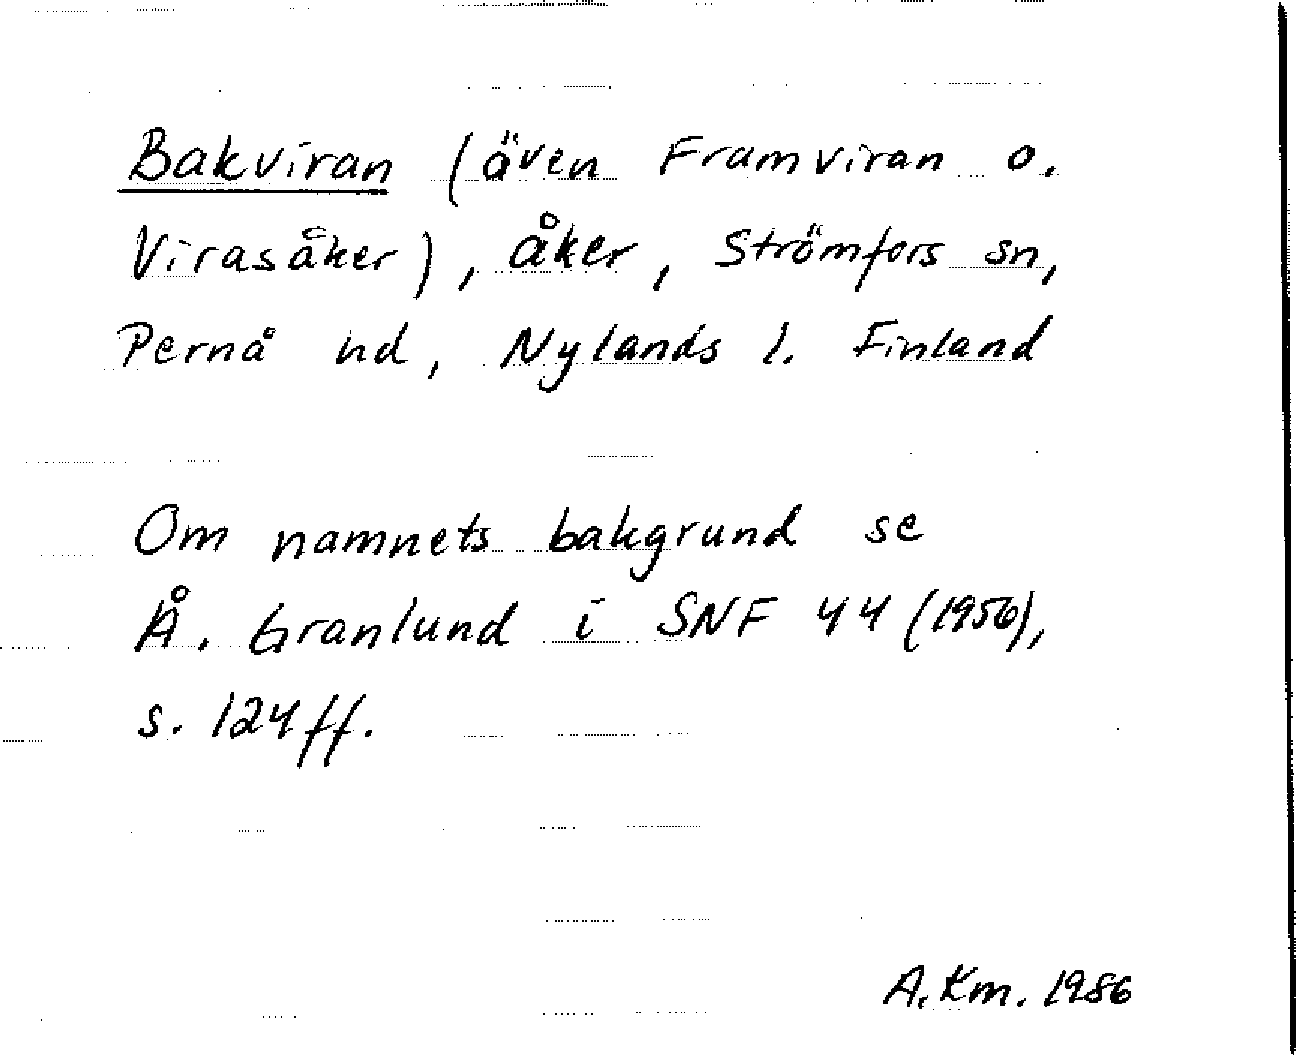 Bakviran (även Framviran o.
Virasåker), åker, Strömfors sn,
Pernå hd, Nylands l. Finland
Om namnets bakgrund se
Å. Granlund i SNF 44 (1956),
s. 124 ff.
A.Km. 1986